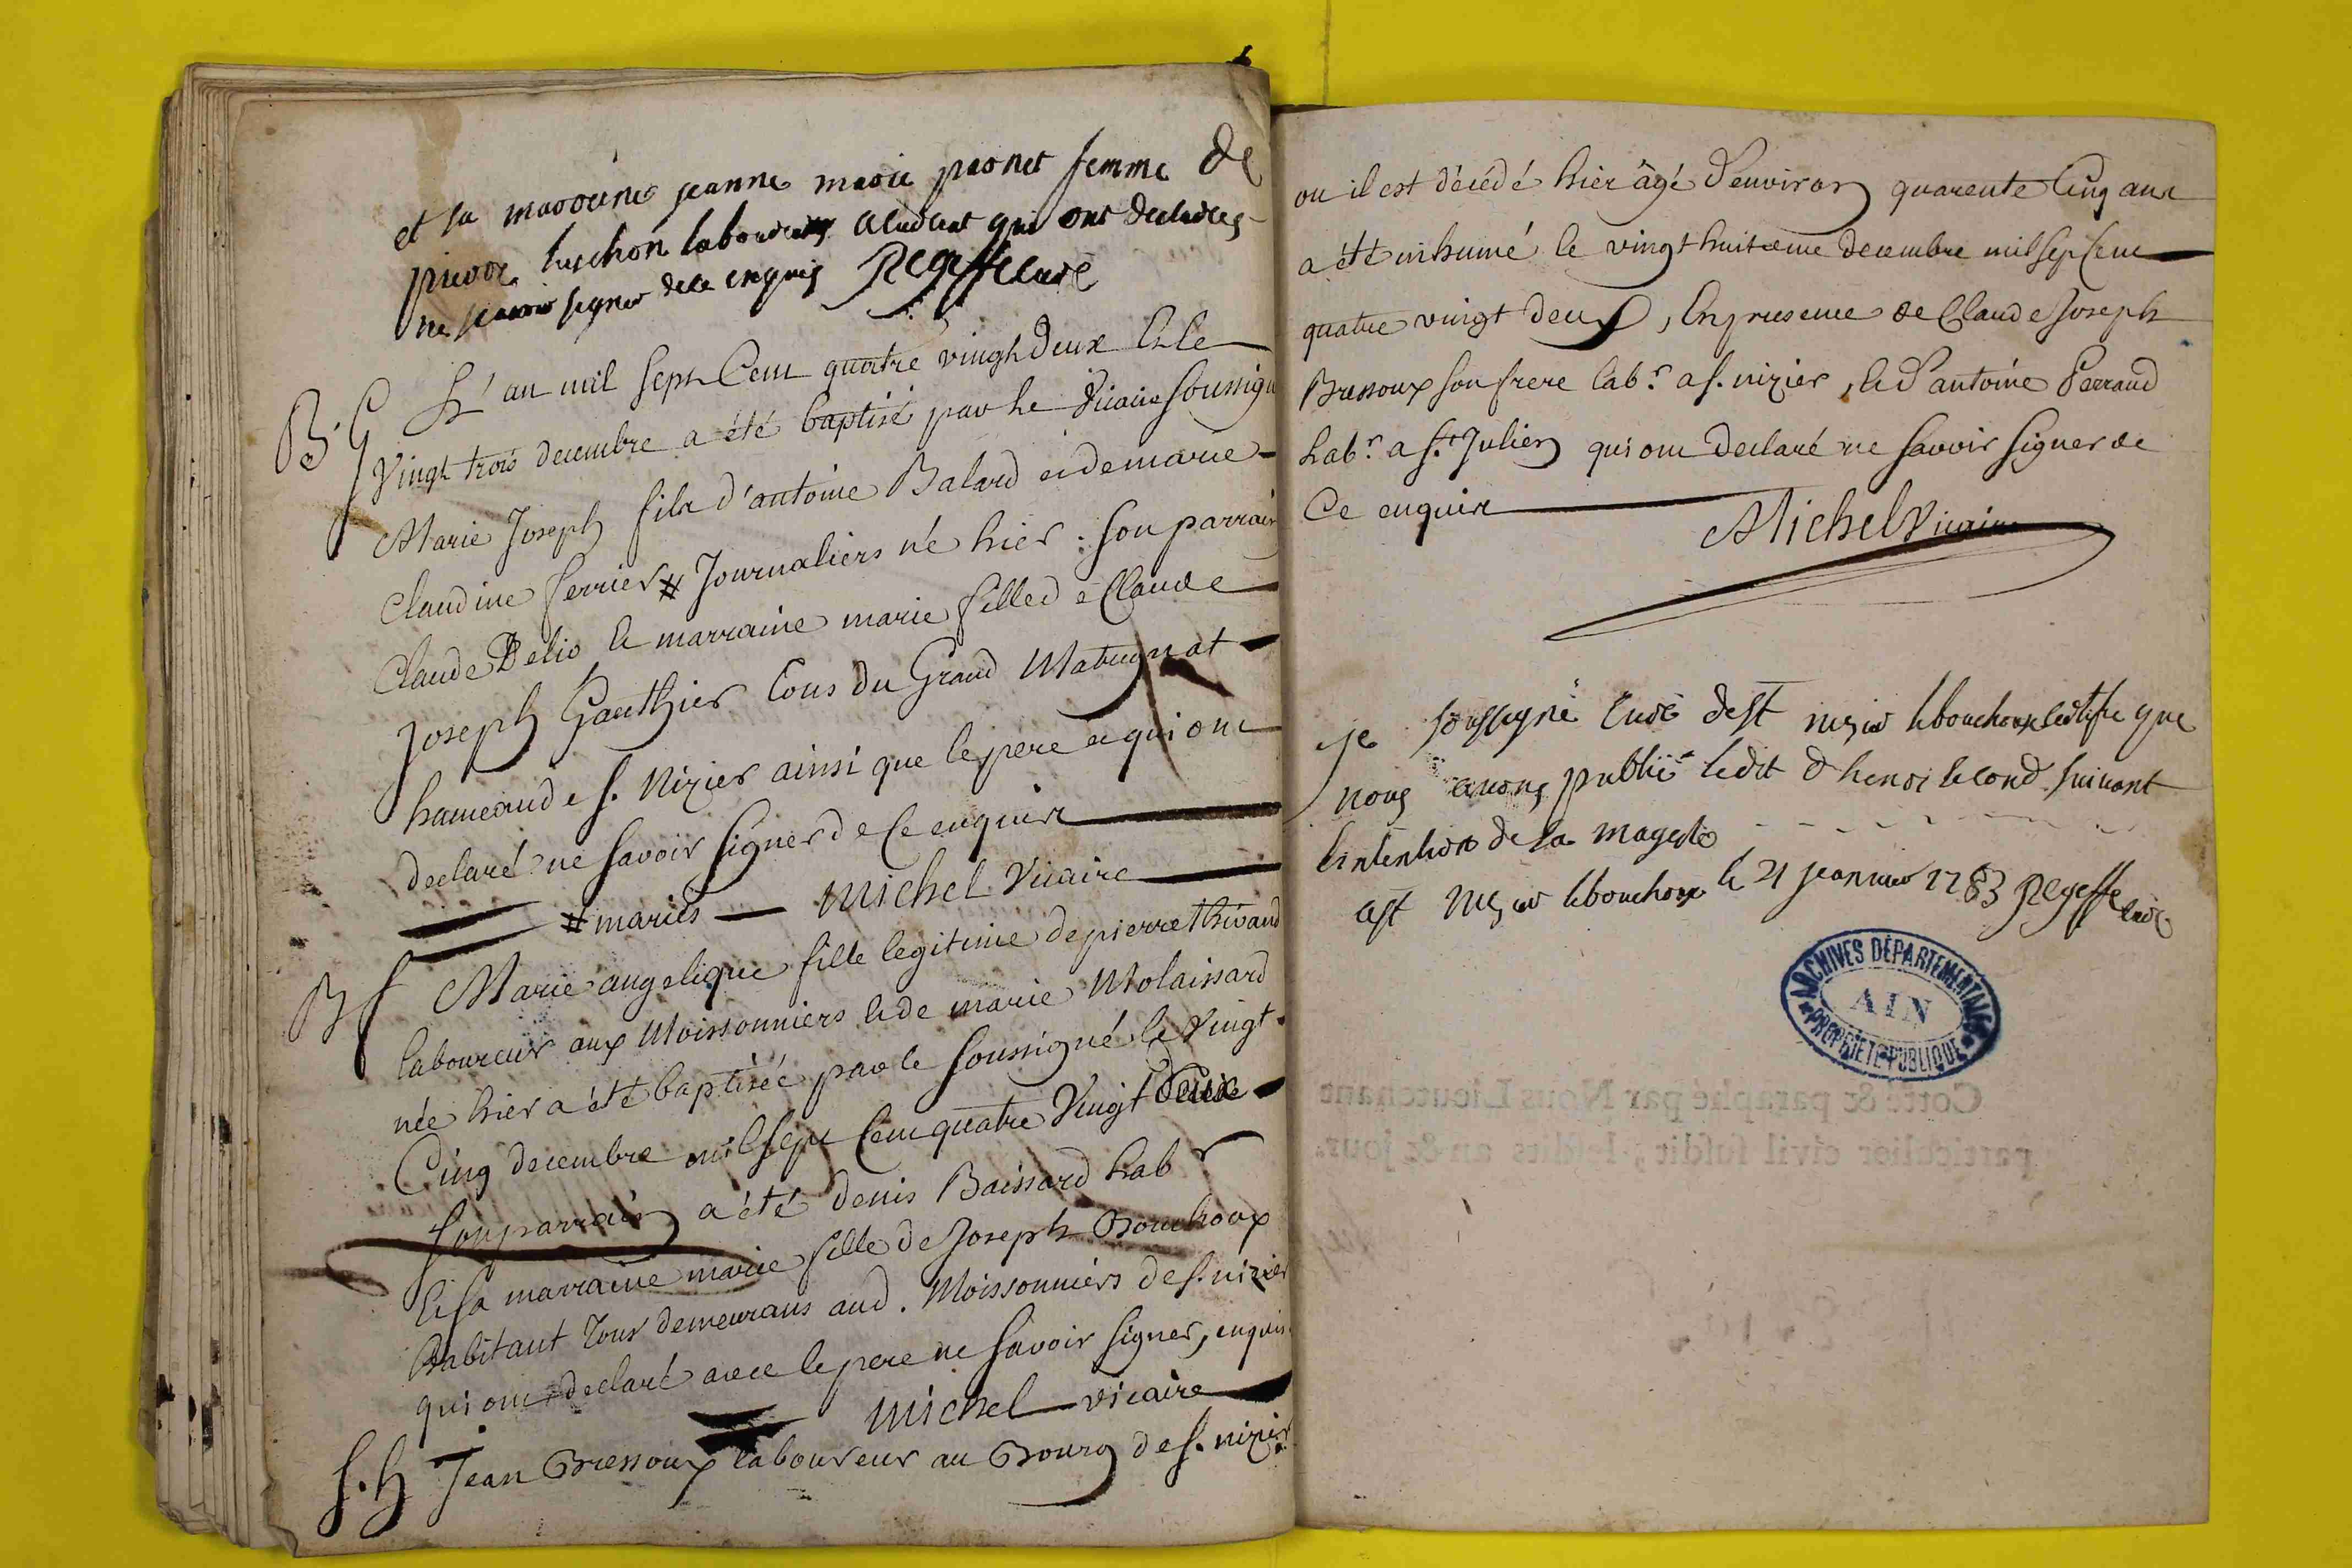 et sa maroine jeanne marie paonet femme de
pieror tuschon laboureur aludeat qui ont declarés
ne scavoir signer de ce enquis Regeffe curé
B. G L'an mil sept Cent quatre vingt Deux & le
Vingt trois decembre a été baptisé par le Vicaire soussigné
Marie Joseph fils d'antoine Balard et de marie
Claudine ferrier # Journaliers né hier : son parrain
Claude Belio & marraine marie fille de Claude
Joseph Gauthier tous du Grand Matugnat
hameau de s. Nizier ainsi que le pere et qui ont
declaré ne savoir signer de ce enquis
# mariés Michel Vicaire
B f Marie angelique fille legitime de pierre thivaud
laboureur aux Moissonniers & de marie Molaissard
née hier a été baptisée par le soussigné le Vingt
Cinq decembre mil sept Cent quatre Vingt Deux
son parrain a été Denis Baissard Lab r
& sa marraine marie fille de Joseph Bouchoux
habitant tous demeurans aud. Moissonniers de s. nizier
qui ont declaré avec le pere ne savoir signer, enquis
Michel vicaire
S. h Jean Bressoux laboureur au Bourg de s. nizier
ou il est décédé hier âgé d'environ quarente Cinq ans
a été inhumé le vingt huitieme decembre mil sept Cent
quatre vingt deux, En presence de Claude Joseph
Bressoux son frere lab.r a s. nizier, & d'antoine Perraud
Lab.r a s.t Julien qui ont declaré ne savoir signer de
Ce enquis
Michel Vicaire
je soussigné curé de st nizier le bouchoux certifie que
nous avons publié ledit d henri second suivant
lintention de sa magesté
a st nizier le bouchoux le 21 jeanvier 1783 Regeffe curé
ARCHIVES DÉPARTEMENTALES
AIN
PROPRIÉTÉ PUBLIQUE
Cotté & paraphé par Nous Lieutenant
particulier civil susdit, lesdits an & jour.